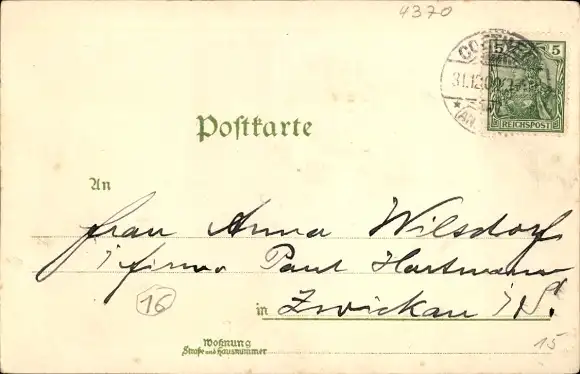 4370
COETHEN
31.12.00
(AN
5 5
REICHSPOST
Postkarte
An
Frau Anna Wilsdorf
i/Firma Paul Hartmann
in Zwickau i/S.
16
Wohnung
Straße und Hausnummer
15